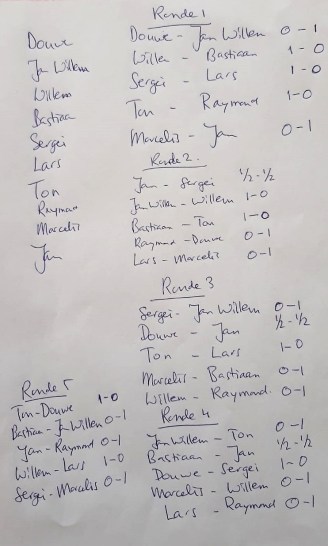 Douwe
Jan Willem
Willem
Bastiaan
Sergei
Lars
Ton
Raymond
Marcelis
Jan
Ronde 1
Douwe - Jan Willem 0 - 1
Willem - Bastiaan 1 - 0
Sergei - Lars 1 - 0
Ton - Raymond 1-0
Marcelis - Jan 0-1
Ronde 2.
Jan - Sergei ½-½
Jan Willem - Willem 1-0
Bastiaan - Ton 1-0
Raymond - Douwe 0-1
Lars - Marcelis 0-1
Ronde 3
Sergei - Jan Willem 0-1
Douwe - Jan ½-½
Ton - Lars 1-0
Marcelis - Bastiaan 0-1
Willem - Raymond 0-1
Ronde 4
Jan Willem - Ton 0-1
Bastiaan - Jan ½-½
Douwe - Sergei 1-0
Marcelis - Willem 0-1
Lars - Raymond 0-1
Ronde 5
Ton - Douwe 1-0
Bastiaan - Jan Willem 0-1
Jan - Raymond 0-1
Willem - Lars 1-0
Sergei - Marcelis 0-1